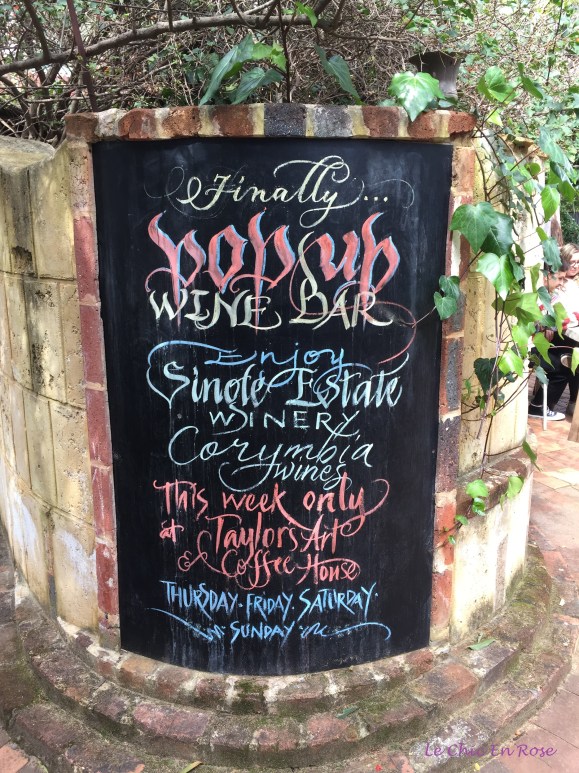 Finally...
pop up
WINE BAR
Enjoy
Single Estate
WINERY
Corymbia
wines
This week only
at Taylors Art
& Coffee House
THURSDAY. FRIDAY. SATURDAY.
SUNDAY
Le Chic En Rose